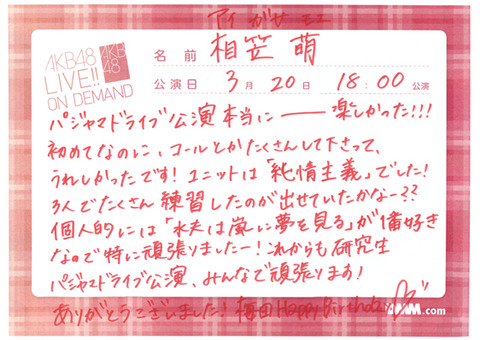 アイ ガサ モエ
AKB48
LIVE!!
ON DEMAND
AKB
48
名前 相笠 萌
公演日 3月 20日 18:00 公演
パジャマドライブ公演本当に―――楽しかった!!!
初めてなのに、コールとかたくさんして下さって、
うれしかったです!ユニットは「純情主義」でした!
3人でたくさん練習したのが出せていたかなー??
個人的には「水夫は嵐に夢を見る」が1番好き
なので特に頑張りましたー!これからも研究生
パジャマドライブ公演、みんなで頑張ります!
ありがとうございました!梅田Happy Birthday
.com